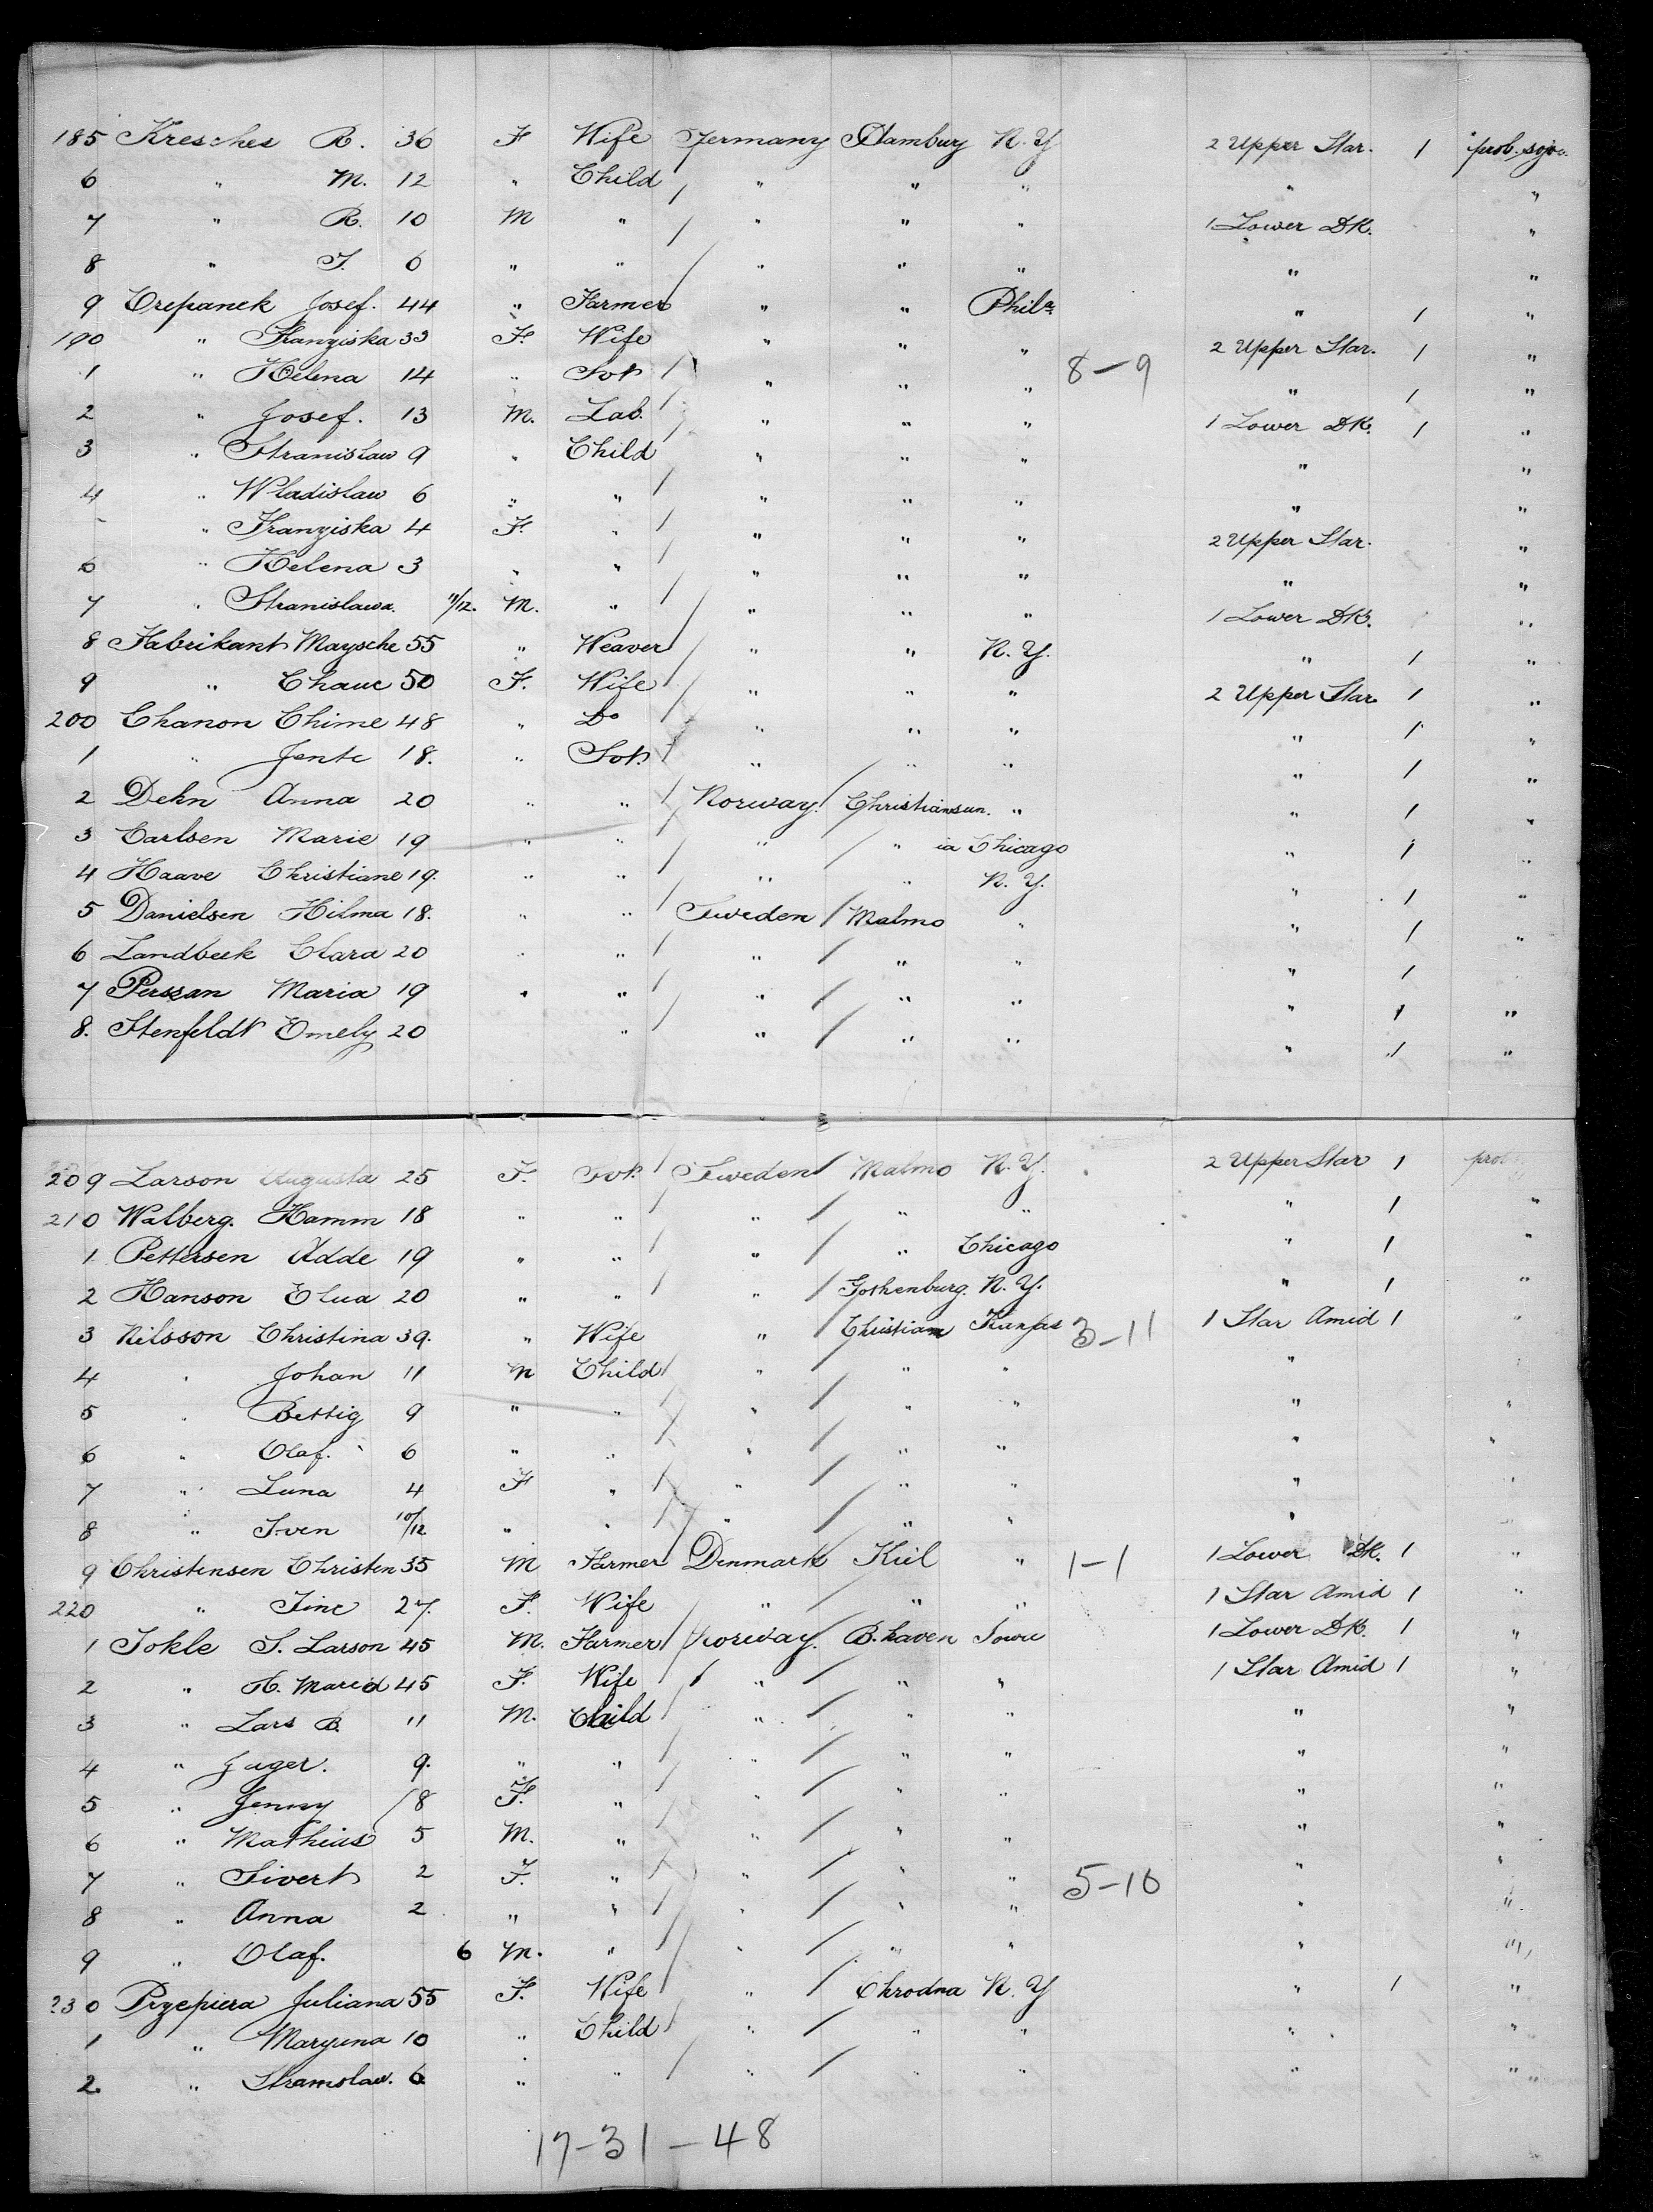 185 Kresches R. 36 F Wife Germany Hamburg N.Y 2 Upper Star. 1 prob. sojou.
6 " M. 12 " Child " " " " "
7 " R. 10 M " " " " 1 Lower DK. "
8 " I. 6 " " " " " " "
9 Crepanek Josef. 44 " Farmer " " Phila " 1 "
190 " Franziska 33 F. Wife " " " 2 Upper Star. 1 "
1 " Helena 14 " Svt " " " 8-9 " 1 "
2 " Josef. 13 M. Lab. " " " 1 Lower DK. 1 "
3 " Stranislaw 9 " Child " " " " "
4 " Wladislaw 6 " " " " " " "
" Franziska 4 F. " " " " 2 Upper Star. "
6 " Helena 3 " " " " " " "
7 " Stranislawa. 11/12. M. " " " " 1 Lower DK. "
8 Fabrikant Maysche 55 " Weaver " " N.Y. " 1 "
9 " Chaue 50 F. Wife " " " 2 Upper Star 1 "
200 Chanon Chime 48 " Do " " " " 1 "
1 " Jente 18. " Svt. " " " " 1 "
2 Dehn Anna 20 " " Norway. Christiansun. " " 1 "
3 Carlsen Marie 19 " " " " ia Chicago " 1 "
4 Haave Christiane 19. " " " " N.Y. " 1 "
5 Danielsen Hilma 18. " " Sweden Malmo " " 1
6 Landbeck Clara 20 " " " " " " 1 "
7 Perszan Maria 19 " " " " " " 1 "
8. Stenfeldt Emely 20 " " " " " 1 "
209 Larson Augusta 25 F. Svt. Sweden Malmo N.Y. 2 Upper Star 1 prob
210 Walberg. Hamm 18 " " " " " " 1 "
1 Pettersen Adde 19 " " " " Chicago " 1 "
2 Hanson Elua 20 " " " Gothenburg. N.Y. " 1 "
3 Nilsson Christina 39. " Wife " Christiam Kansas 3-11 1 Star Amid 1 "
4 " Johan 11 M Child " " " "
5 " Bettig 9 " " " " " " "
6 " Olaf. 6 " " " " " " "
7 " Luna 4 F " " " " " "
8 " Sven 10/12 " " " " " " "
9 Christensen Christen 35 M Farmer Denmark Kiel " 1-1 1 Lower DK. 1 "
220 " Tine 27. F. Wife " " " 1 Star Amid 1 "
1 Jokle S. Larson 45 M. Farmer Norway. B.haven Iowa 1 Lower DK. 1 "
2 " H. Maria 45 F. Wife " " " 1 Star Amid 1 "
3 " Lars B. 11 M. Child " " " " "
4 " Jager. 9. " " " " " " "
5 " Jenny 8 F. " " " " " "
6 " Mathias 5 M. " " " " " "
7 " Sivert 2 F. " " " " 5-10 " "
8 " Anna 2 " " " " " " "
9 " Olaf. 6 M. " " " " " "
230 Przepiera Juliana 55 F. Wife " Chrodna N.Y " 1 "
1 " Maryuna 10 " Child " " " " "
2. " Stramslaw. 6 " " " " " " "
17-31-48